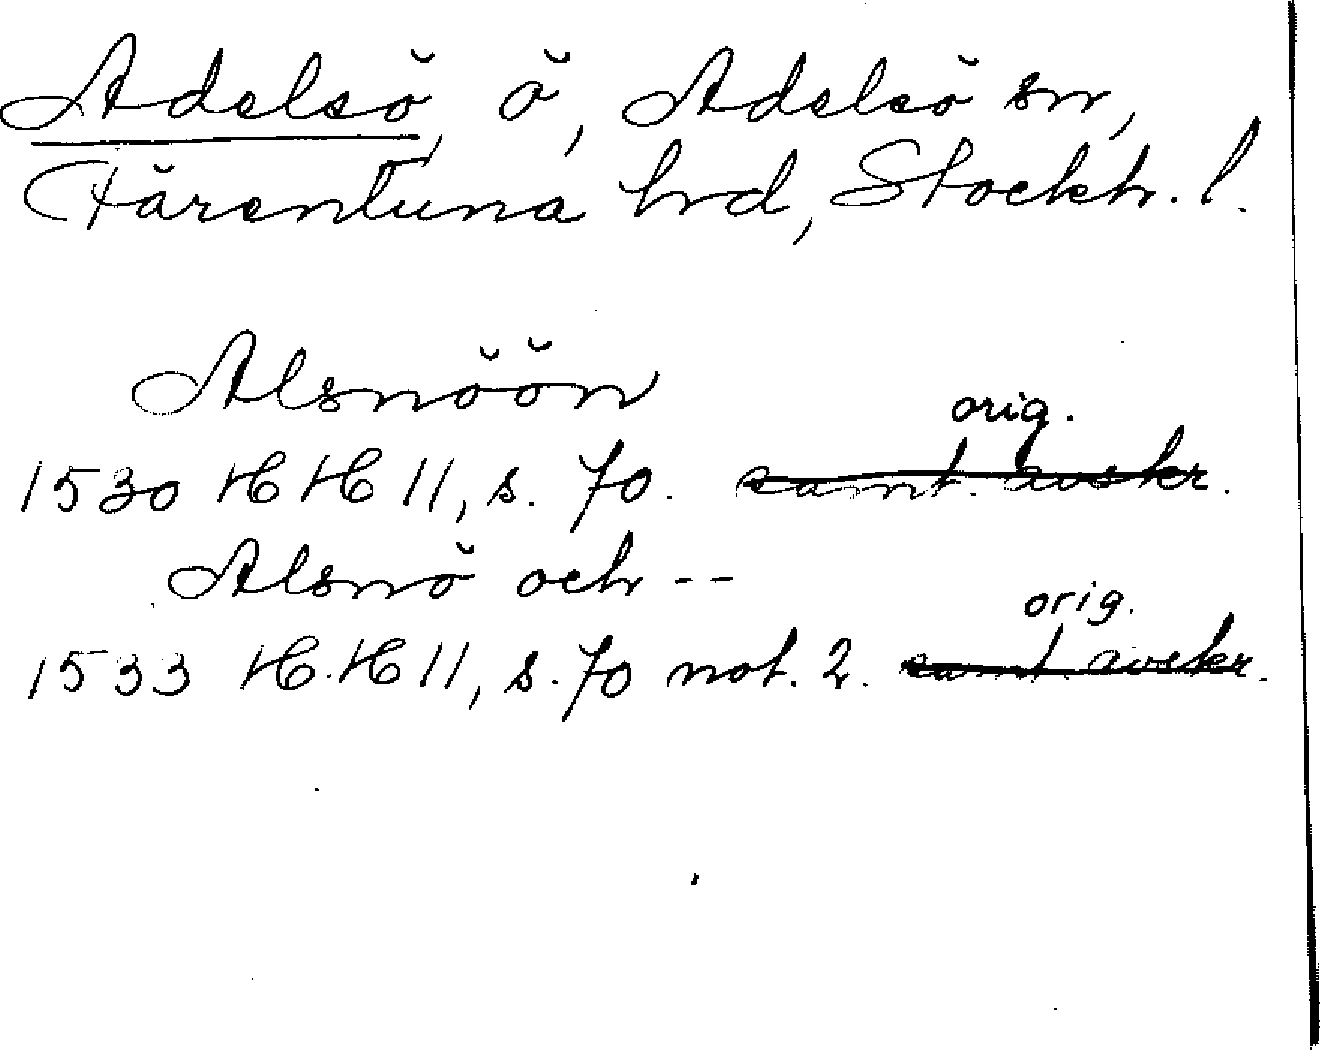 Adelsö, ö, Adelsö sn,
Färentuna hd, Stockh. l.
Alsnöön
orig.
1530 HH 11, s. 70. samt. avskr.
Alsnö och --
orig.
1533 H.H 11, s. 70 not. 2. samt. avskr.